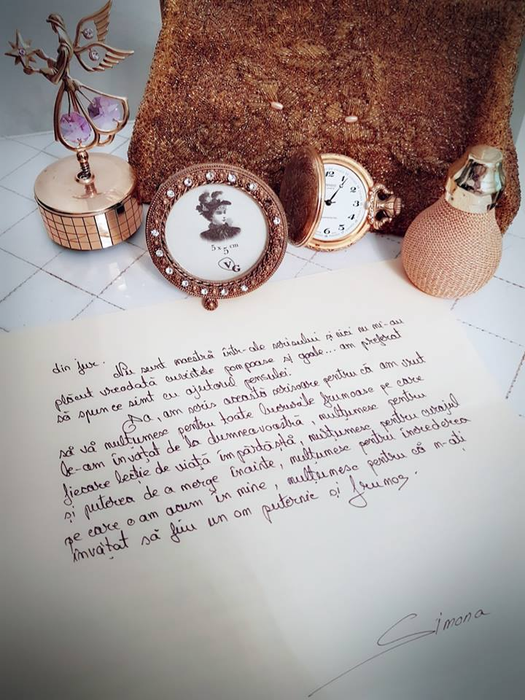 5 x 5 cm
VG
din jur. Nu sunt maestră într-ale scrisului și nici nu mi-au
plăcut vreodată cuvintele pompoase și goale... am preferat
să spun ce simt cu ajutorul penulei.
Da, am scris această scrisoare pentru că am vrut
să vă mulțumesc pentru toate lucrurile frumoase pe care
le-am învățat de la dumneavoastră, mulțumesc pentru
fiecare lecție de viață împărtășită, mulțumesc pentru curajul
și puterea de a merge înainte, mulțumesc pentru încrederea
pe care o am acum în mine, mulțumesc pentru că m-ați
învățat să fiu un om puternic și frumos.
Simona